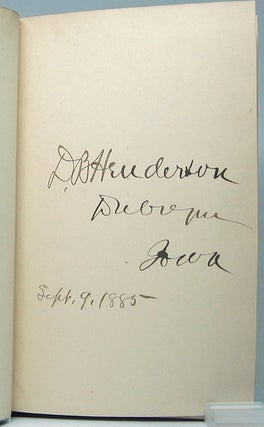 D.B Henderson
Dubuque
Iowa
Sept. 9. 1885-